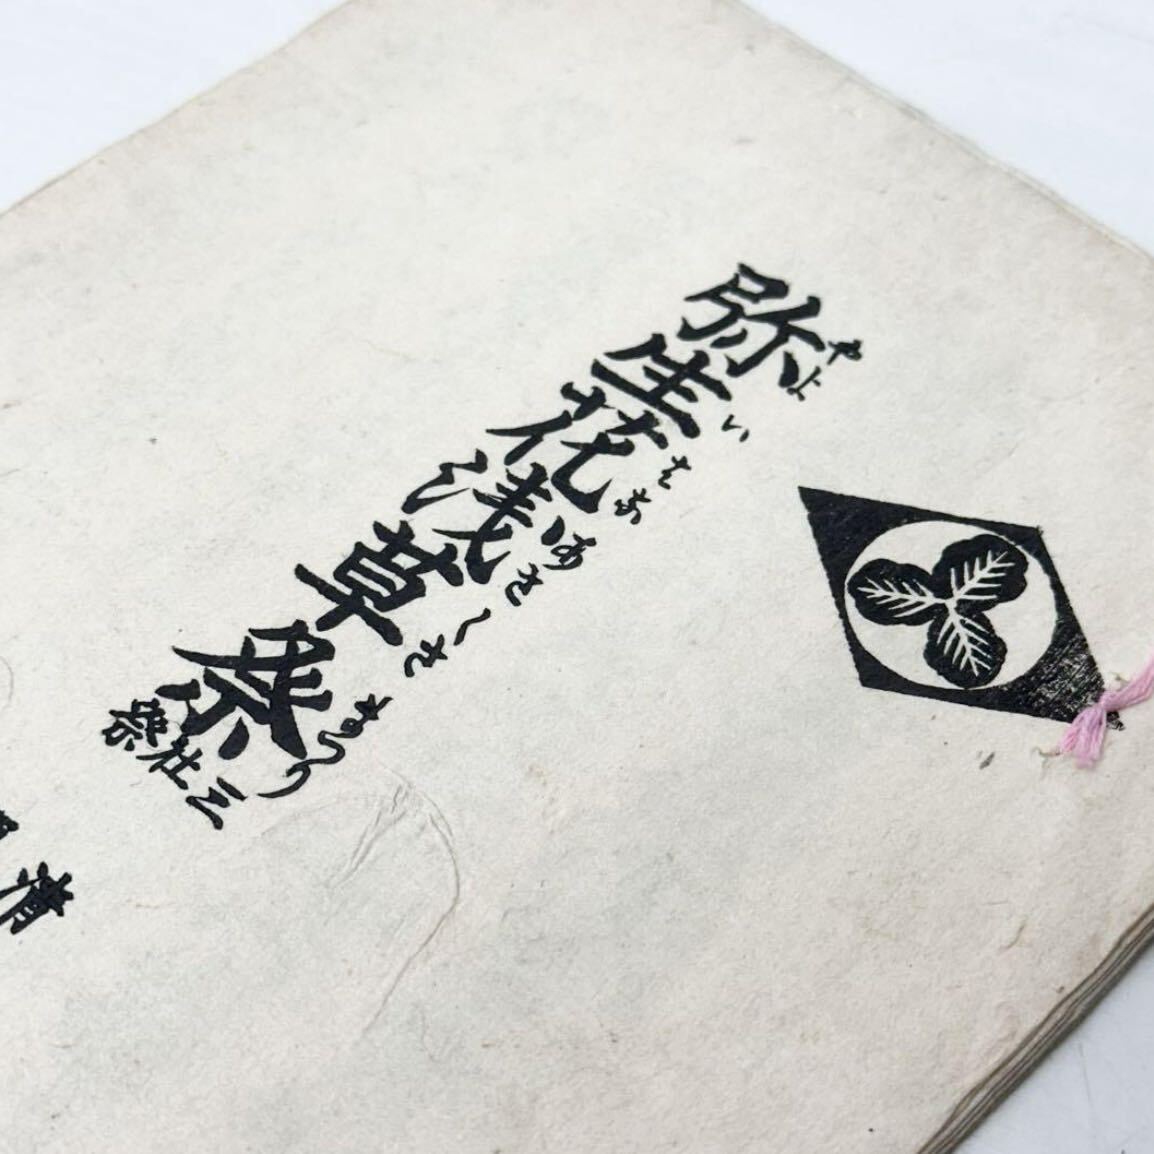 弥生花浅草祭
やよいはなあさくさまつり
三社祭
清